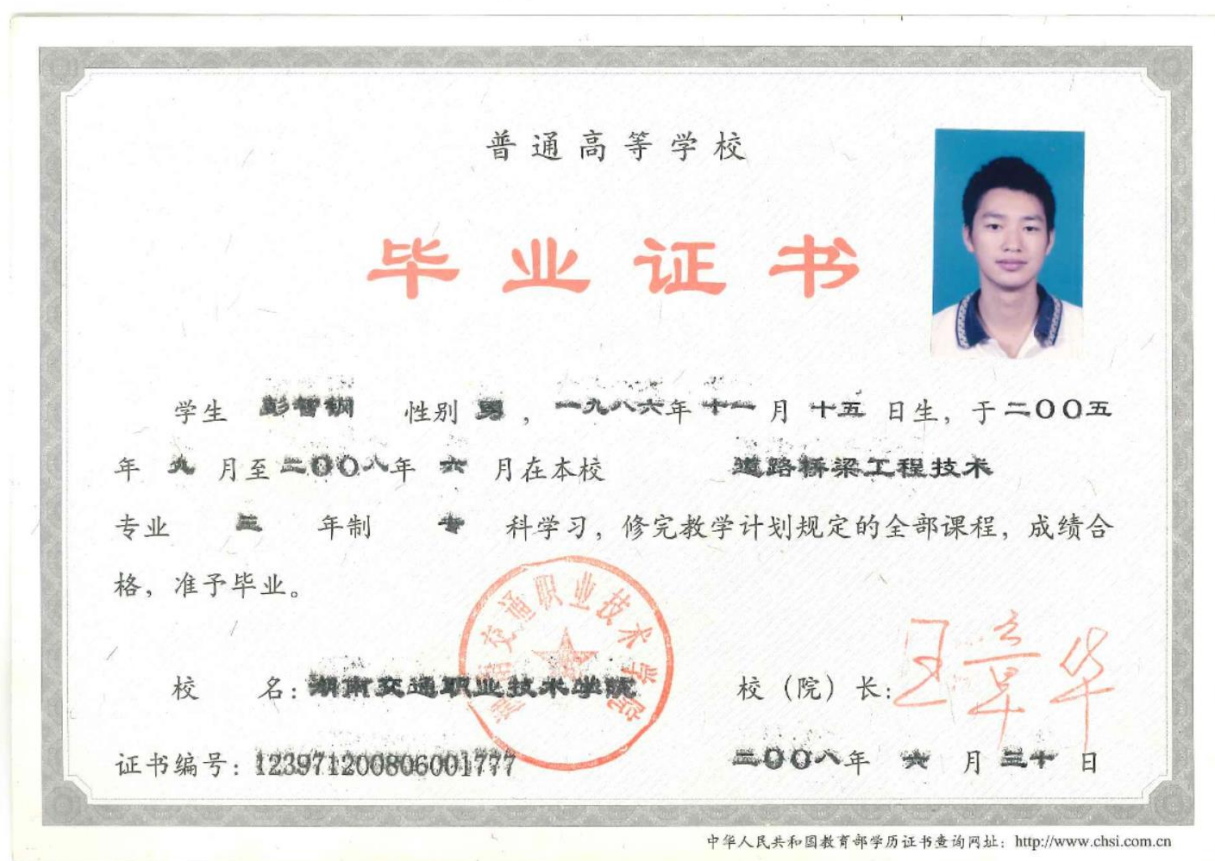 普通高等学校
毕业证书
学生 彭智钢 性别 男，一九八六年 十一 月 十五 日生，于二〇〇五
年 九 月至二〇〇八年 六 月在本校 道路桥梁工程技术
专业 三 年制 专 科学习，修完教学计划规定的全部课程，成绩合
格，准予毕业。
湖南交通职业技术学院
校 名：湖南交通职业技术学院 校（院）长：王章华
证书编号：123971200806001777 二〇〇八年 六 月 三十 日
中华人民共和国教育部学历证书查询网址：http://www.chsi.com.cn